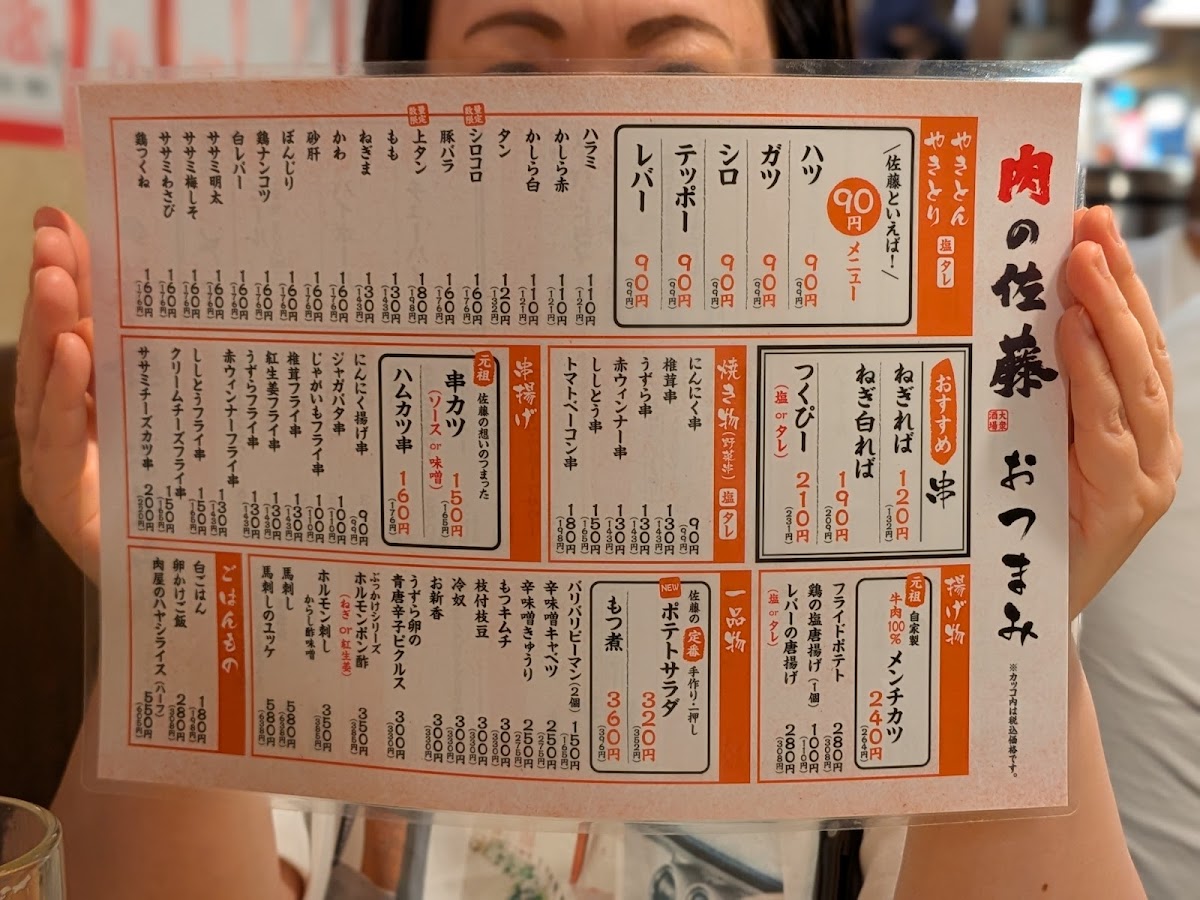 肉の佐藤
大衆酒場
おつまみ
※カッコ内は税込価格です。
やきとん
やきとり
塩 タレ
\佐藤といえば!/
90円メニュー
ハツ 90円(99円)
ガツ 90円(99円)
シロ 90円(99円)
テッポー 90円(99円)
レバー 90円(99円)
ハラミ 110円(121円)
かしら赤 110円(121円)
かしら白 110円(121円)
タン 120円(132円)
数量限定 シロコロ 160円(176円)
豚バラ 160円(176円)
数量限定 上タン 180円(198円)
もも 130円(143円)
ねぎま 130円(143円)
かわ 160円(176円)
砂肝 160円(176円)
ぼんじり 160円(176円)
鶏ナンコツ 160円(176円)
白レバー 160円(176円)
ササミ明太 160円(176円)
ササミ梅しそ 160円(176円)
ササミわさび 160円(176円)
鶏つくね 160円(176円)
おすすめ串
ねぎれば 120円(132円)
ねぎ白れば 190円(209円)
つくぴー(塩 or タレ) 210円(231円)
焼き物(野菜串) 塩 タレ
にんにく串 90円(99円)
椎茸串 130円(143円)
うずら串 130円(143円)
赤ウィンナー串 130円(143円)
ししとう串 150円(165円)
トマトベーコン串 180円(198円)
串揚げ
元祖 佐藤の想いのつまった
串カツ(ソース or 味噌) 150円(165円)
ハムカツ串 160円(176円)
にんにく揚げ串 90円(99円)
ジャガバタ串 100円(110円)
じゃがいもフライ串 100円(110円)
椎茸フライ串 130円(143円)
紅生姜フライ串 130円(143円)
うずらフライ串 130円(143円)
赤ウィンナーフライ串 130円(143円)
ししとうフライ串 150円(165円)
クリームチーズフライ串 150円(165円)
ササミチーズカツ串 200円(220円)
揚げ物
元祖 自家製
牛肉100%
メンチカツ 240円(264円)
フライドポテト 280円(308円)
鶏の塩唐揚げ(1個) 100円(110円)
レバーの唐揚げ(塩 or タレ) 280円(308円)
一品物
佐藤の定番 手作り・一押し
NEW ポテトサラダ 320円(352円)
もつ煮 360円(396円)
バリバリピーマン(2個) 150円(165円)
辛味噌キャベツ 250円(275円)
辛味噌きゅうり 250円(275円)
もつキムチ 300円(330円)
枝付枝豆 300円(330円)
冷奴 300円(330円)
お新香 300円(330円)
うずら卵の
青唐辛子ピクルス 300円(330円)
ぶっかけシリーズ
ホルモンポン酢(ねぎ or 紅生姜) 350円(385円)
ホルモン刺し
からし酢味噌 350円(385円)
馬刺し 580円(638円)
馬刺しのユッケ 580円(638円)
ごはんもの
白ごはん 180円(198円)
卵かけご飯 280円(308円)
肉屋のハヤシライス(ハーフ) 550円(605円)